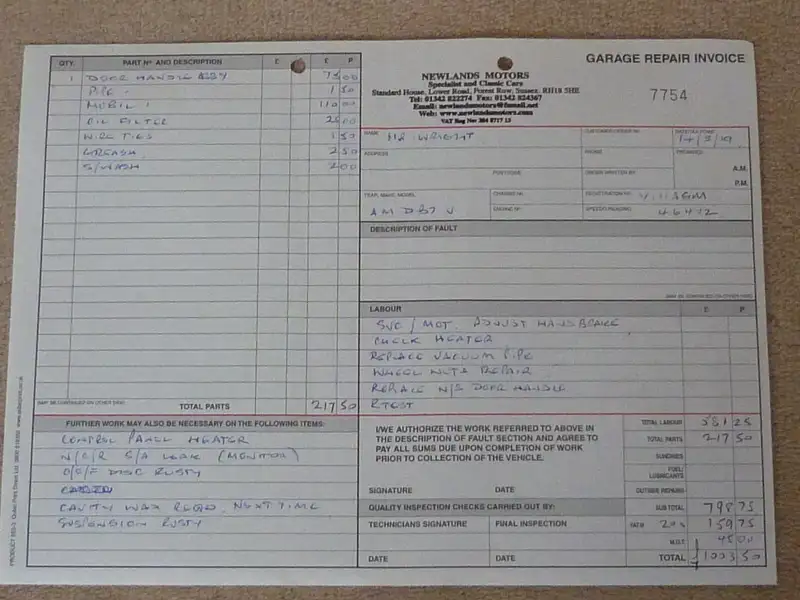 QTY. PART Nº AND DESCRIPTION £ £ P
1 DOOR HANDLE 75 00
PIPE 1 50
MOBIL 1 110 00
OIL FILTER 25 00
WIRE TIES 1 50
GREASE 2 50
S/WASH 2 00
MAY BE CONTINUED ON OTHER SIDE
TOTAL PARTS 217 50
FURTHER WORK MAY ALSO BE NECESSARY ON THE FOLLOWING ITEMS:
CONTROL PANEL HEATER
N/S/R S/A LEAK (MONITOR)
O/S/F DISC RUSTY
CAVITY WAX REQD. NEXT TIME
SUSPENSION RUSTY
GARAGE REPAIR INVOICE
7754
NEWLANDS MOTORS
Specialist and Classic Cars
Standard House, Lower Road, Forest Row, Sussex. RH18 5HE
Tel: 01342 822274 Fax: 01342 824367
Email: newlandsmotors@fsmail.net
Web: www.newlandsmotors.com
NAME MR WRIGHT
ADDRESS
PHONE
PROMISED
POSTCODE
ORDER WRITTEN BY
A.M.
P.M.
YEAR, MAKE, MODEL
AM DB7 V
CHASSIS Nº
ENGINE Nº
REGISTRATION Nº
SPEEDO READING 46412
DESCRIPTION OF FAULT
MAY BE CONTINUED ON OTHER SIDE
LABOUR £ P
SVC / MOT. ADJUST HANDBRAKE
CHECK HEATER
REPLACE VACUUM PIPE
WHEEL NUTS REPAIR
REPLACE N/S DOOR HANDLE
R TEST
I/WE AUTHORIZE THE WORK REFERRED TO ABOVE IN
THE DESCRIPTION OF FAULT SECTION AND AGREE TO
PAY ALL SUMS DUE UPON COMPLETION OF WORK
PRIOR TO COLLECTION OF THE VEHICLE.
SIGNATURE DATE
QUALITY INSPECTION CHECKS CARRIED OUT BY:
TECHNICIANS SIGNATURE FINAL INSPECTION
DATE DATE
TOTAL LABOUR 581 25
TOTAL PARTS 217 50
SUNDRIES
FUEL/
LUBRICANTS
OUTSIDE REPAIRS
SUB TOTAL 798 75
VAT@ 20% 159 75
M.O.T. 45 00
TOTAL £1003 50